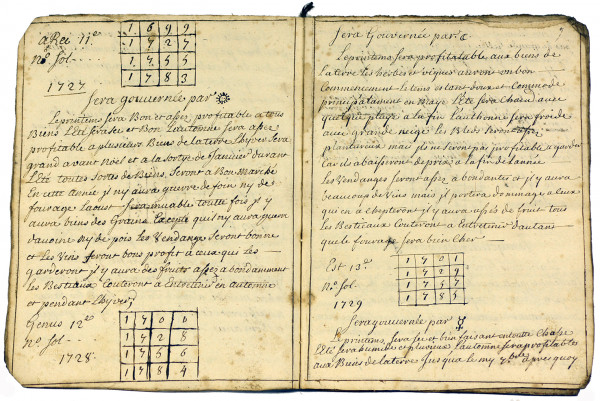 a Rei 11e
1 6 9 9
1 7 2 7
1 7 5 5
1 7 8 3
no. Sol
1727
Sera gouvernée par
Le printems Sera Bon et assez profitable a tous
Biens Lété Sera Sec et Bon Lautonne Sera assez
profitable a plusieurs Biens de la terre Lhyver Sera
grand avant Noel et a la Sortye de Janvier durant
Lété toutes Sortes de Biens Seront a Bon Marché
En cette année il ny aura guerre de foin ny de
fourage Laoust Sera muable toutte fois il y
aura biens des Grains La qui ny aura guerre
davoine ny de pois les Vendange Seront bonne
et les Vins feront bons profit a ceux qui les
garderont il y aura des fruits assez abondamment
les Bestiaux Couteront a Entretenir en automne
et pendant Lhyver
Genus 12e
1 7 0 0
1 7 2 8
1 7 5 6
1 7 8 4
no. Sol
1728
Sera Gouvernée par
Le printems Sera profitable aux biens de
La terre Les herbes et vignes auront un bon
Commencement Le tems estant doux et Commode
principalament en Maye Lété Sera Chaud avec
quelque pluye a la fin Lauthonne Sera froide
avec grande neige les Blés Seront assez
plantureux mais ils ne Seront pas profitable a garder
Car ils abaisseront de prix a la fin de Lannée
Les Vendanges Seront assez abondantes et il y aura
beaucoup de Vins mais il portera dommage a ceux
qui en achepteront il y aura assez de fruit tous
Les Bestiaux Couteront a Entretenir dautant
que le fourage Sera bien Cher
Est 13e
1 7 0 1
1 7 2 9
1 7 5 7
1 7 8 5
no. Sol
1729
Sera gouvernée par
Le printems Sera Sec et bien faisant en toutte Chose
Lété Sera humille et pluvieux Lautonne Sera profitables
aux Biens de la terre Jusque le my 7bre apres quoy